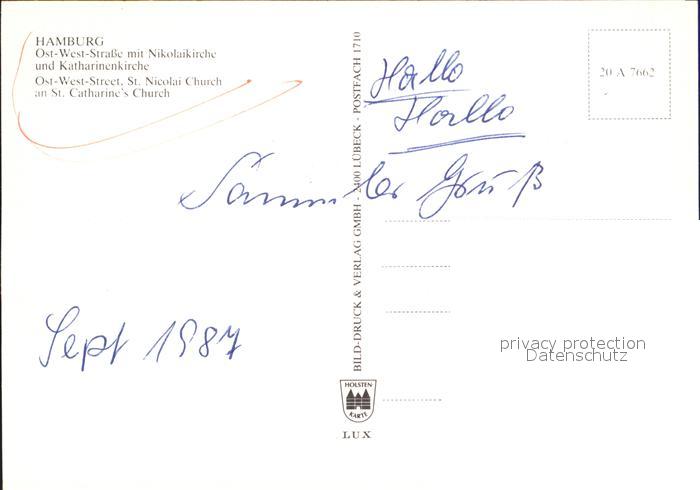 HAMBURG
Ost-West-Straße mit Nikolaikirche
und Katharinenkirche
Ost-West-Street, St. Nicolai Church
an St. Catharine's Church
BILD-DRUCK & VERLAG GMBH - 2400 LÜBECK - POSTFACH 1710
20 A 7662
Hallo
Hallo
Sammler Gruß
Sept 1987
privacy protection
Datenschutz
HOLSTEN
KARTE
LUX